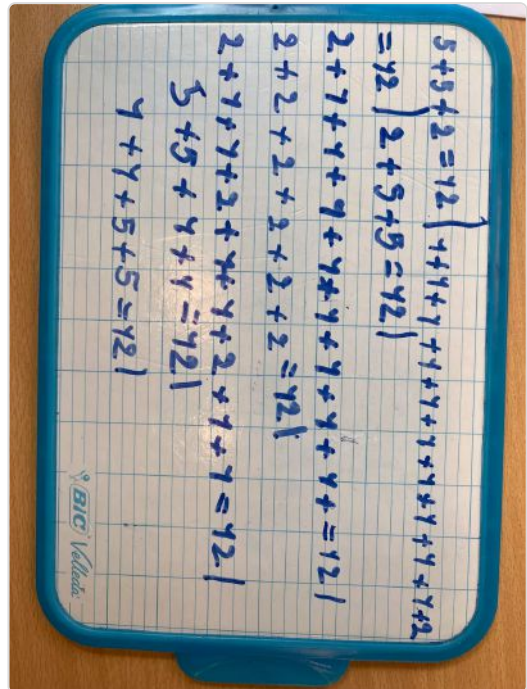 5+5+2=12| 1+1+1+1+1+1+1+1+1+1+2
=12| 2+5+5=12|
2+1+1+1+1+1+1+1+1+=12|
2+2+2+2+2+2=12|
2+1+1+2+1+1+2+1+1=12|
5+5+1+1=12|
1+1+5+5=12|
BIC Velleda